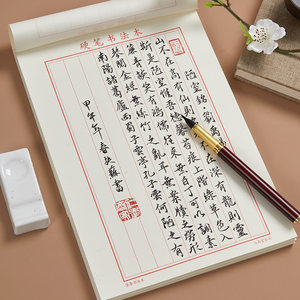 硬笔书法本
陋室銘 劉禹
山不在高有仙則 在深有龍則靈
斯是陋室惟吾德馨苔痕上階綠草色入
簾青談笑有鴻儒往來無白丁可以調素
琴閱金經無絲竹之亂耳無案牘之勞形
南陽諸葛廬西蜀子雲亭孔子云何陋之有
甲午年 春 書